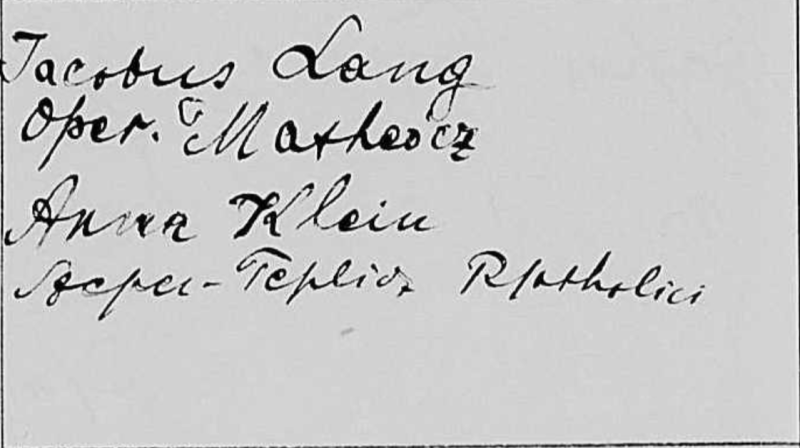 Jacobus Lang
Oper. Matheócz
Anna Klein
Szepes-Teplicz Rkatholici